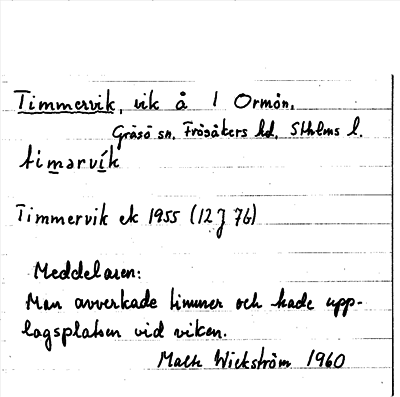 Timmervik, vik å l Ormön,
Gräsö sn, Frösåkers hd, Sthlms l.
timərvík
Timmervik ek 1955 (12J 7b)
Meddelaren:
Man avverkade timmer och hade upp-
lagsplatsen vid viken.
Wickström 1960